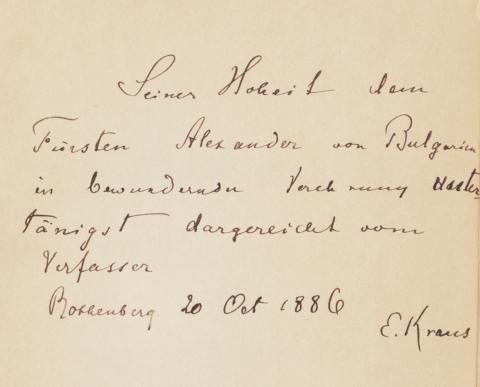 Seiner Hoheit dem
Fürsten Alexander von Bulgarien
in bewundernder Verehrung unter-
tänigst dargereicht vom
Verfasser
20 Oct 1886
E. Kraus